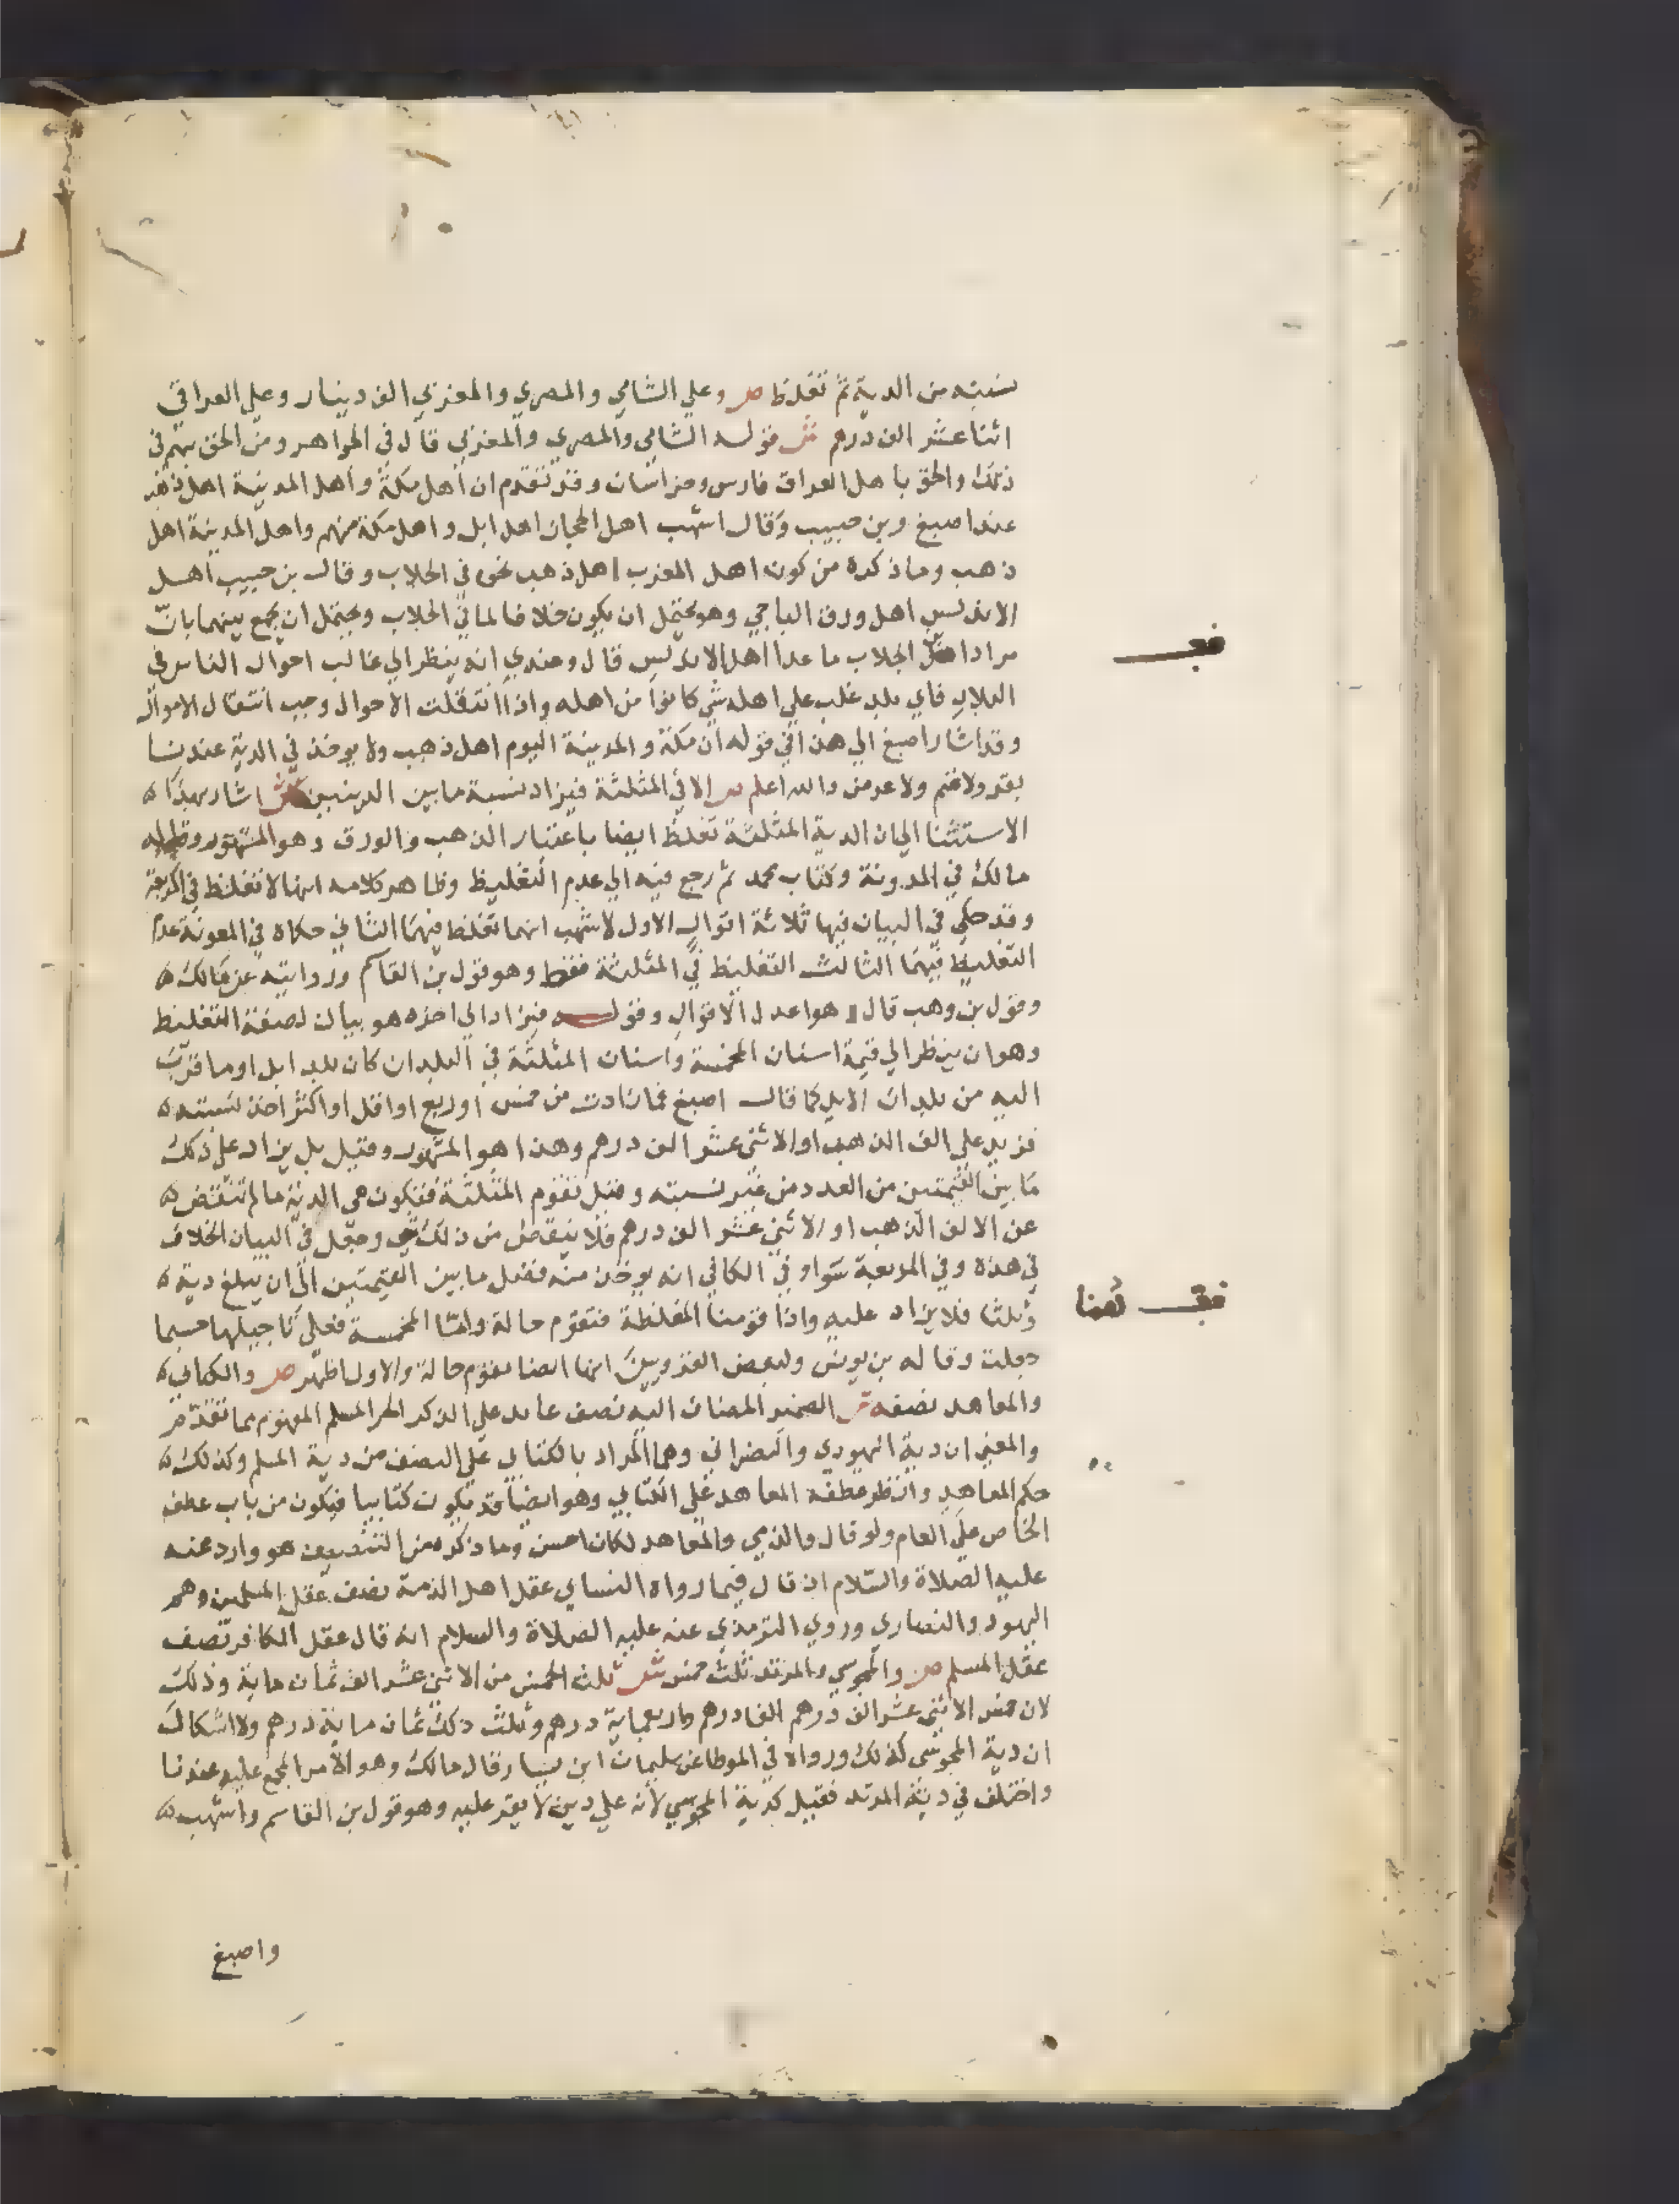 نسبته من الدية ثم تغلظ ص وعلي الشامي والمصري والمغربي الف دينار وعلي العراقي
اثنا عشر الف درهم ش قوله الشامي والمصري والمغربي قال في الجواهر ومن الحق بهم في
ذلك والحق باهل العراق فارس وخراسان وقد تقدم ان اهل مكة واهل المدينة اهل ذهب
عند اصبغ وبن حبيب وقال اشهب اهل الحجاز اهل ابل واهل مكة منهم واهل المدينة اهل
ذهب وما ذكره من كون اهل المغرب اهل ذهب نحوه في الجلاب وقال بن حبيب اهل
الاندلس اهل ورق الباجي وهو يحتمل ان يكون خلافا لما في الجلاب ويحتمل ان يجمع بينهما بان
مراد الجلاب ما عدا اهل الاندلس قال وعندي انه ينظر الي غالب احوال الناس في
البلاد فاي بلد غلب علي اهله شي كانوا من اهله واذا انتقلت الاحوال وجب انتقال الاموال
وقد اشار اصبغ الي هذا في قوله ان مكة والمدينة اليوم اهل ذهب ولا يوخذ في الدية عندنا
بقر ولا غنم ولا عرض والله اعلم ص الا في المثلثة فيزاد نسبة ما بين الديتين ش اشار بهذا
الاستثنا الي ان الدية المثلثة تغلظ ايضا باعتبار الذهب والورق وهو المشهور وقاله
مالك في المدونة وكتاب محمد ثم رجع فيه الي عدم التغليظ وظاهر كلامه انها لا تغلظ في المربعة
وقد حكي في البيان فيها ثلاثة اقوال الاول لاشهب انها تغلظ فيهما الثاني حكاه في المعونة عدم
التغليظ فيهما الثالث التغليظ في المثلثة فقط وهو قول بن القاسم وروايته عن مالك
وقول بن وهب قال هو اعدل الاقوال وقوله فيزاد الي اخره هو بيان لصفة التغليظ
وهو ان ينظر الي قيمة اسنان المخمسة واسنان المثلثة في البلدان كان بلد ابل او ما قرب
اليه من بلدان الابل كما قال اصبغ فما زادت من خمس او ربع او اقل او اكثر اخذ نسبته
فزيد علي الف الذهب او الاثني عشر الف درهم وهذا هو المشهور وقيل بل يزاد علي ذلك
ما بين القيمتين من العدد من غير نسبته وقيل تقوم المثلثة فتكون هي الدية ما لم تنقص
عن الالف الذهب او الاثني عشر الف درهم فلا ينقص من ذلك شي وجعل في البيان الخلاف
في هذه وفي المربعة سوا وفي الكافي انه يوخذ منه فضل ما بين القيمتين الي ان يبلغ دية
وثلثا فلا يزاد عليه واذا قومنا المغلظة فتقوم حالة واما المخمسة فعلي تاجيلها حسبما
جعلت وقاله بن يونس ولبعض القرويين انها ايضا تقوم حالة والاول اظهر ص والكتابي
والمعاهد نصفه ش الضمير المضاف اليه نصف عايد علي الذكر الحر المسلم المفهوم مما تقدم
والمعني ان دية اليهودي والنصراني وهما المراد بالكتابي علي النصف من دية المسلم وكذلك
حكم المعاهد وانظر عطفه المعاهد علي الكتابي وهو ايضا قد يكون كتابيا فيكون من باب عطف
الخاص علي العام ولو قال والذمي والمعاهد لكان احسن وما ذكره من التنصيف هو وارد عنه
عليه الصلاة والسلام ان قال فيما رواه النساي عقل اهل الذمة نصف عقل المسلمين وهم
اليهود والنصاري وروي الترمذي عنه عليه الصلاة والسلام انه قال عقل الكافر نصف
عقل المسلم ص والمجوسي والمرتد ثلث خمس ش ثلث الخمس من الاثني عشر الف ثمان ماية وذلك
لان خمس الاثني عشر الف درهم الفا درهم واربعماية درهم وثلث ذلك ثمان ماية درهم ولا اشكال
ان دية المجوسي كذلك ورواه في الموطا عن سليمان ابن يسار قال مالك وهو الامر المجمع عليه عندنا
واختلف في دية المرتد فقيل كدية المجوسي لانه علي دين لا يقر عليه وهو قول بن القاسم واشهب
واصبغ